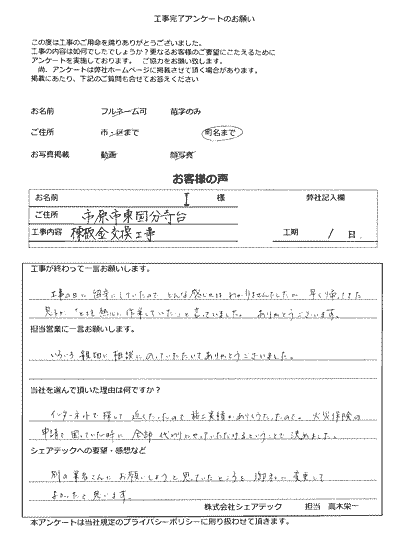 工事完了アンケートのお願い
この度は工事のご用命を賜りありがとうございました。
工事の内容は如何でしたでしょうか?更なるお客様のご要望にこたえるために
アンケートを実施しております。 ご協力をお願い致します。
尚、アンケートは弊社ホームページに掲載させて頂く場合があります。
掲載にあたり、下記のご質問も合せてお答えください
お名前 フルネーム可 苗字のみ
ご住所 市・区まで 町名まで
お写真掲載 動画 顔写真
お客様の声
お名前 様 弊社記入欄
ご住所 市原市東国分寺台
工事内容 棟板金交換工事 工期 / 日
工事が終わって一言お願いします。
工事の日に留守にしていたので どんな感じかは わかりませんでしたが 早く帰ってきた
と言っていました。 ありがとうございます。
担当営業に一言お願いします。
いろいろ 親切に 相談に のっていただいてありがとうございました。
当社を選んで頂いた理由は何ですか?
インターネットで探して 近くだったので 施工実績がありそうだったので。 火災保険の
申請で 困っていた時に 全部 代わりにやっていただけるということで 決めました。
シェアテックへの要望・感想など
別の業者さんに お願いしようと思っていたところを 御社に 変更して
よかったと思います。
株式会社シェアテック 担当 高木栄一
本アンケートは当社規定のプライバシーポリシーに則り扱わせて頂きます。